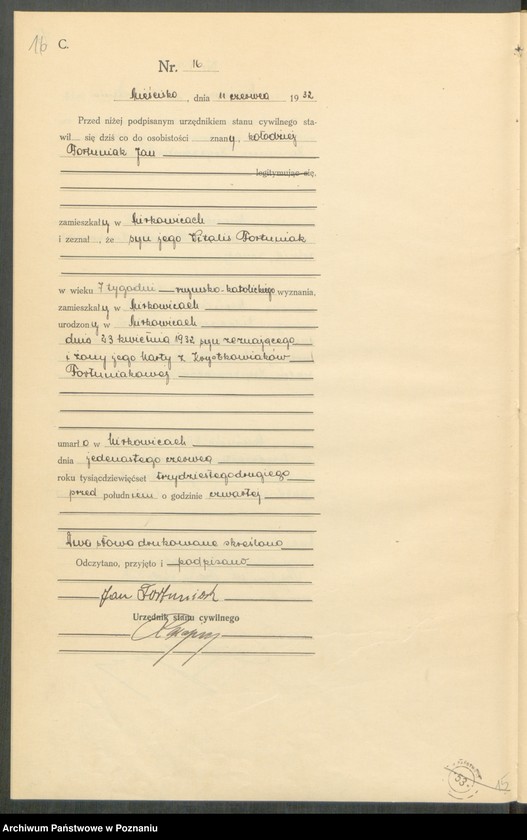 16 C.
Nr. 16
Mieścisko, dnia 11 czerwca 1932
Przed niżej podpisanym urzędnikiem stanu cywilnego sta-
wił się dziś co do osobistości znany, kołodziej
Fortuniak Jan
legitymując się,
zamieszkały w Mirkowicach
i zeznał, że syn jego Witalis Fortuniak
w wieku 7 tygodni rzymsko-katolickiego wyznania,
zamieszkały w Mirkowicach
urodzony w Mirkowicach
dnia 23 kwietnia 1932 syn zeznającego
i żony jego Marty z
Fortuniakowej
umarł o w Mirkowicach
dnia jedenastego czerwca
roku tysiącdziewięćset trzydziestegodrugiego
przed południem o godzinie czwartej
Dwa słowa drukowane skreślono
Odczytano, przyjęto i podpisano
Jan Fortuniak
Urzędnik stanu cywilnego
53
15
Archiwum Państwowe w Poznaniu